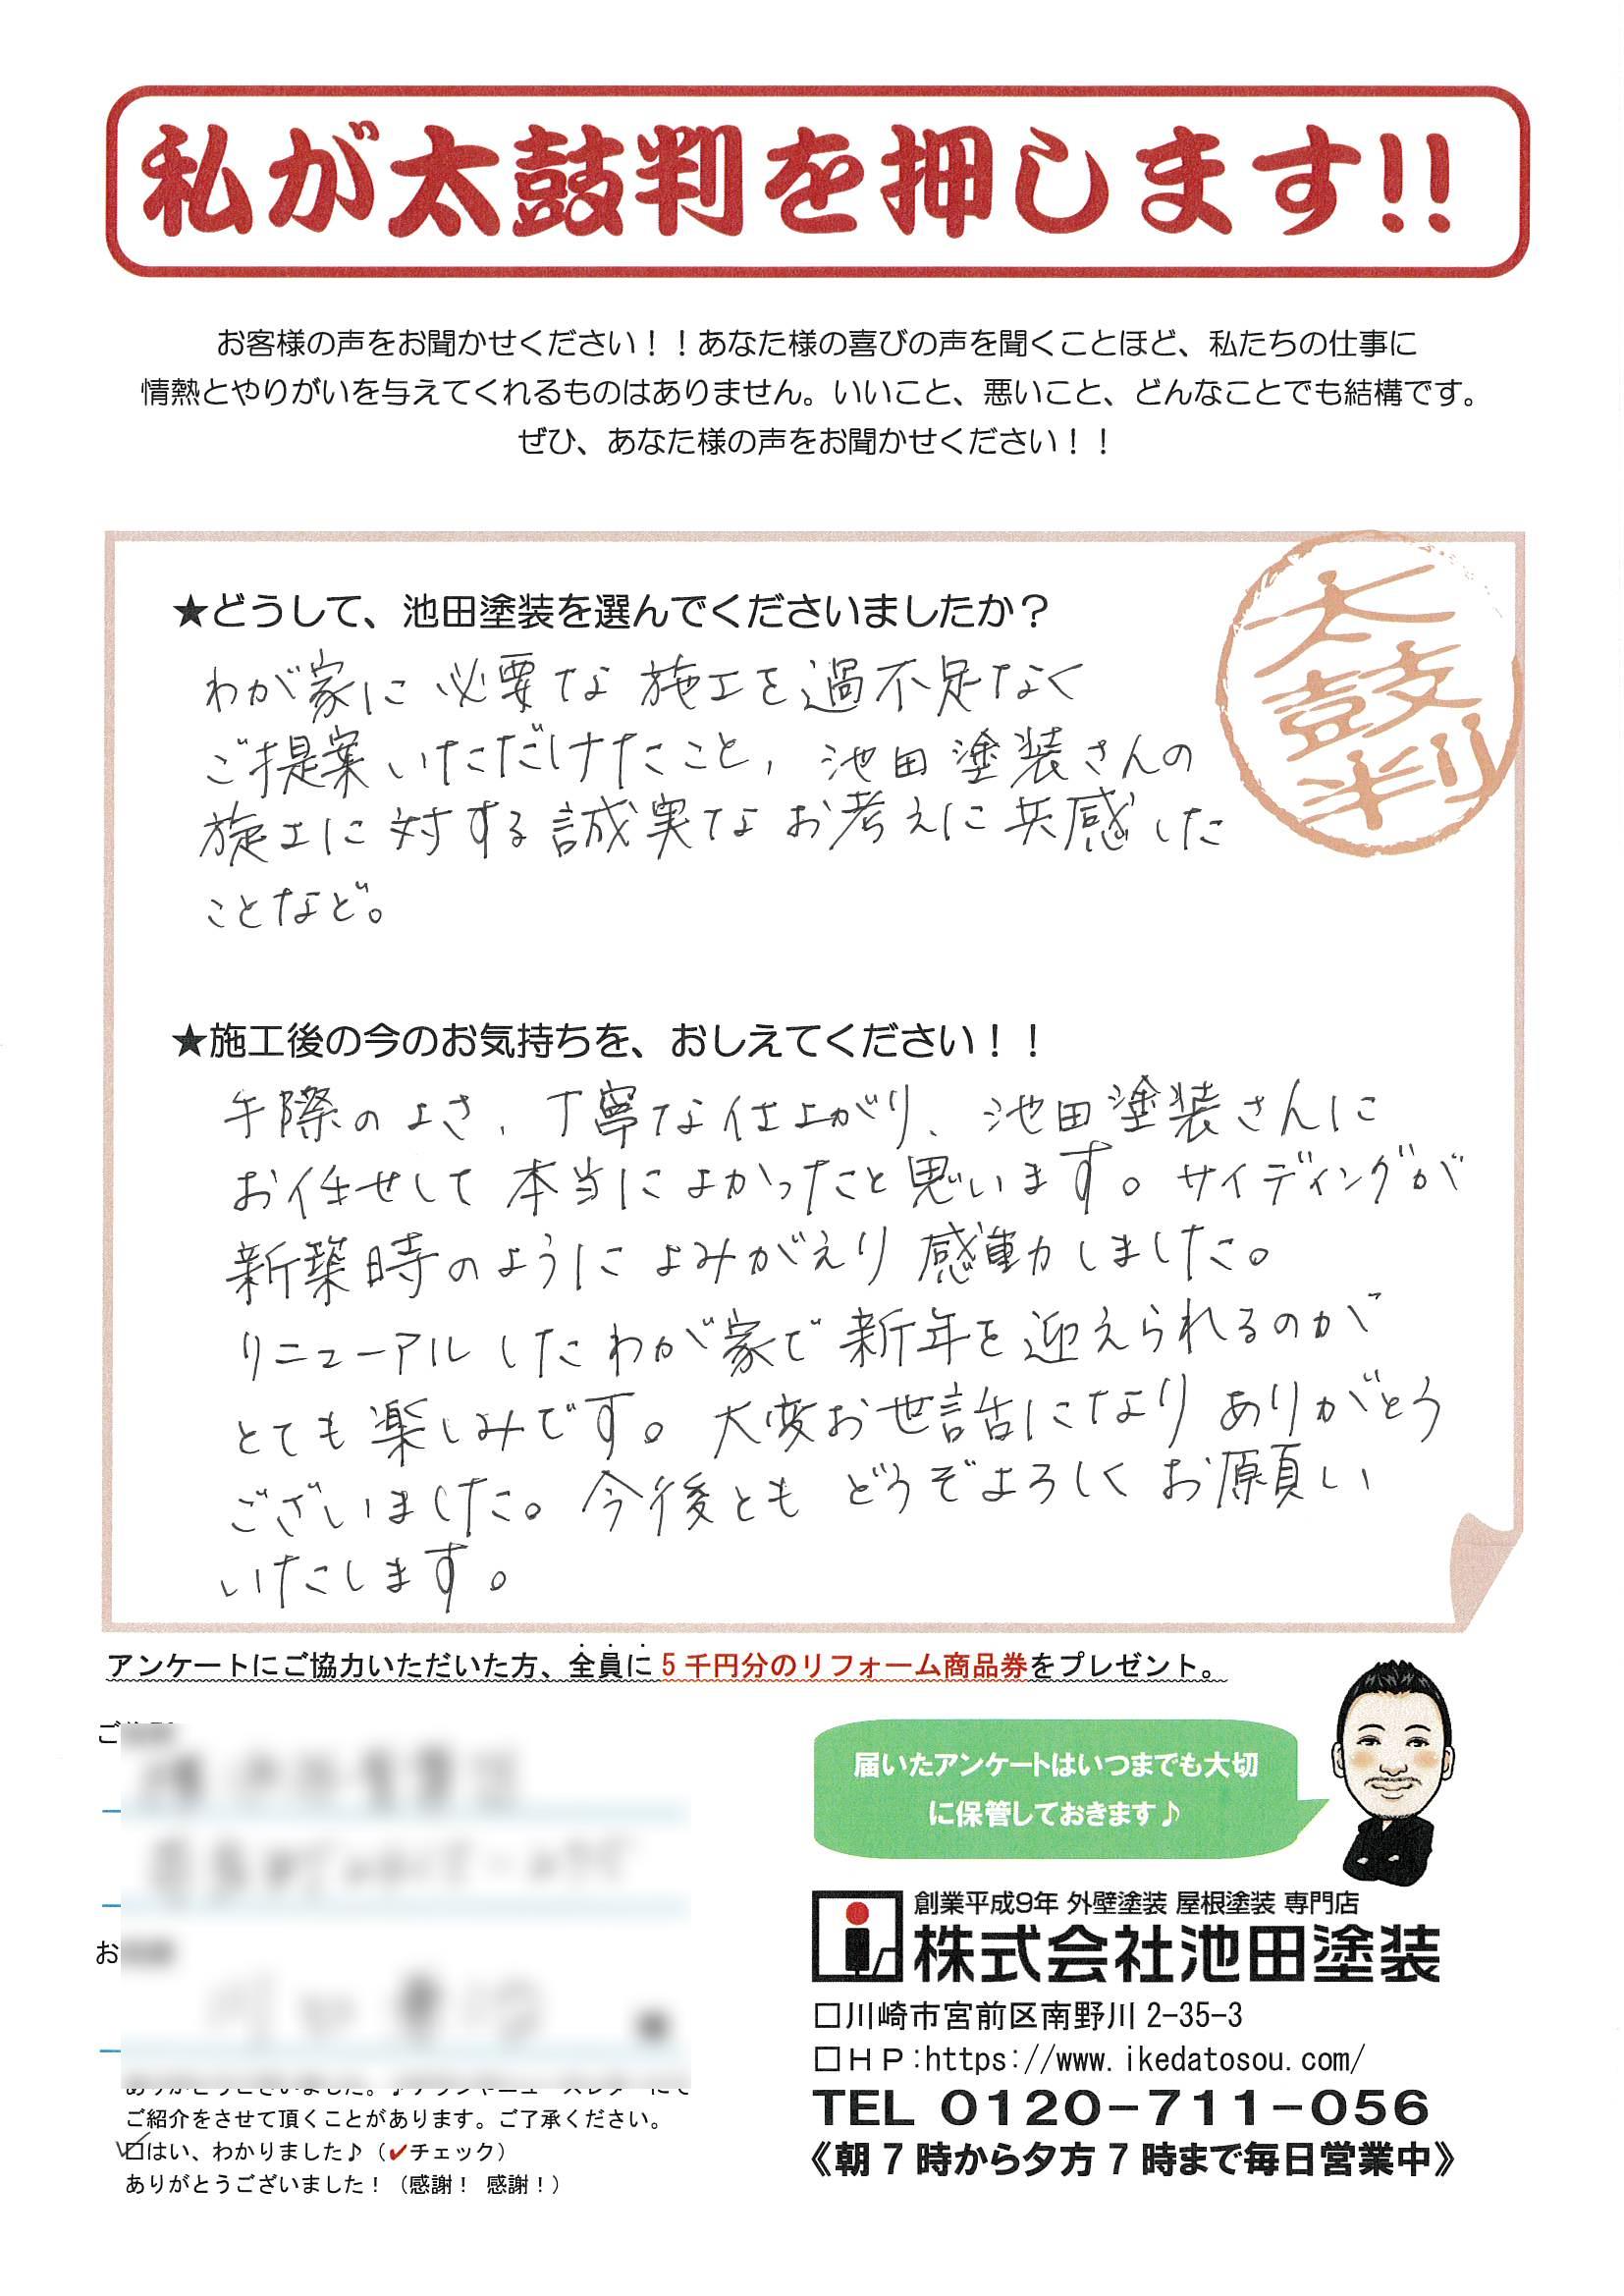 私が太鼓判を押します!!
お客様の声をお聞かせください！！あなた様の喜びの声を聞くことほど、私たちの仕事に
情熱とやりがいを与えてくれるものはありません。いいこと、悪いこと、どんなことでも結構です。
ぜひ、あなた様の声をお聞かせください！！
太鼓判
★どうして、池田塗装を選んでくださいましたか？
わが家に必要な施工を過不足なく
ご提案いただけたこと、池田塗装さんの
施工に対する誠実なお考えに共感した
ことなど。
★施工後の今のお気持ちを、おしえてください！！
手際のよさ、丁寧な仕上がり、池田塗装さんに
お任せして本当によかったと思います。サイディングが
新築時のようによみがえり感動しました。
リニューアルしたわが家で新年を迎えられるのが
とても楽しみです。大変お世話になりありがとう
ございました。今後ともどうぞよろしくお願い
いたします。
アンケートにご協力いただいた方、全員に5千円分のリフォーム商品券をプレゼント。
届いたアンケートはいつまでも大切
に保管しておきます♪
創業平成9年 外壁塗装 屋根塗装 専門店
株式会社池田塗装
□川崎市宮前区南野川2-35-3
□ＨＰ:https://www.ikedatosou.com/
TEL 0120-711-056
《朝7時から夕方7時まで毎日営業中》
ご
お
ご紹介をさせて頂くことがあります。ご了承ください。
☑はい、わかりました♪（✔チェック）
ありがとうございました！（感謝！ 感謝！）